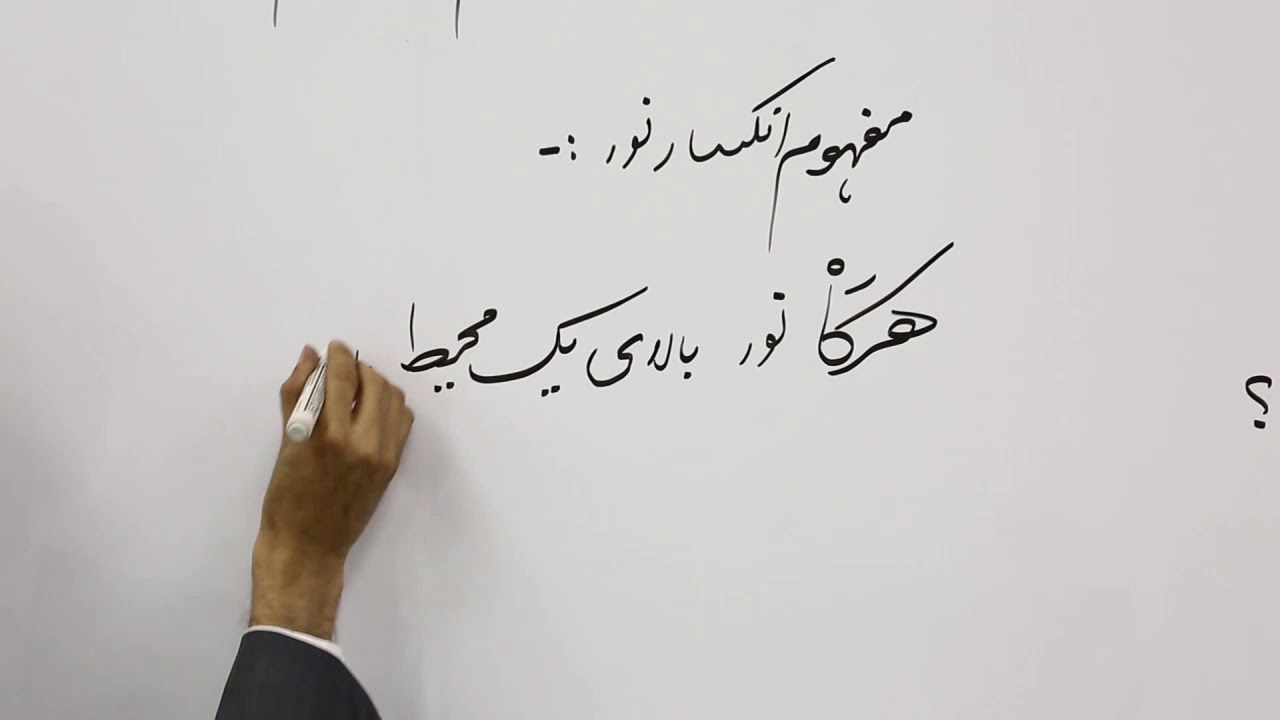 مفهوم انکسار نور :-
هرگاْه نور بالای یک محیط
؟